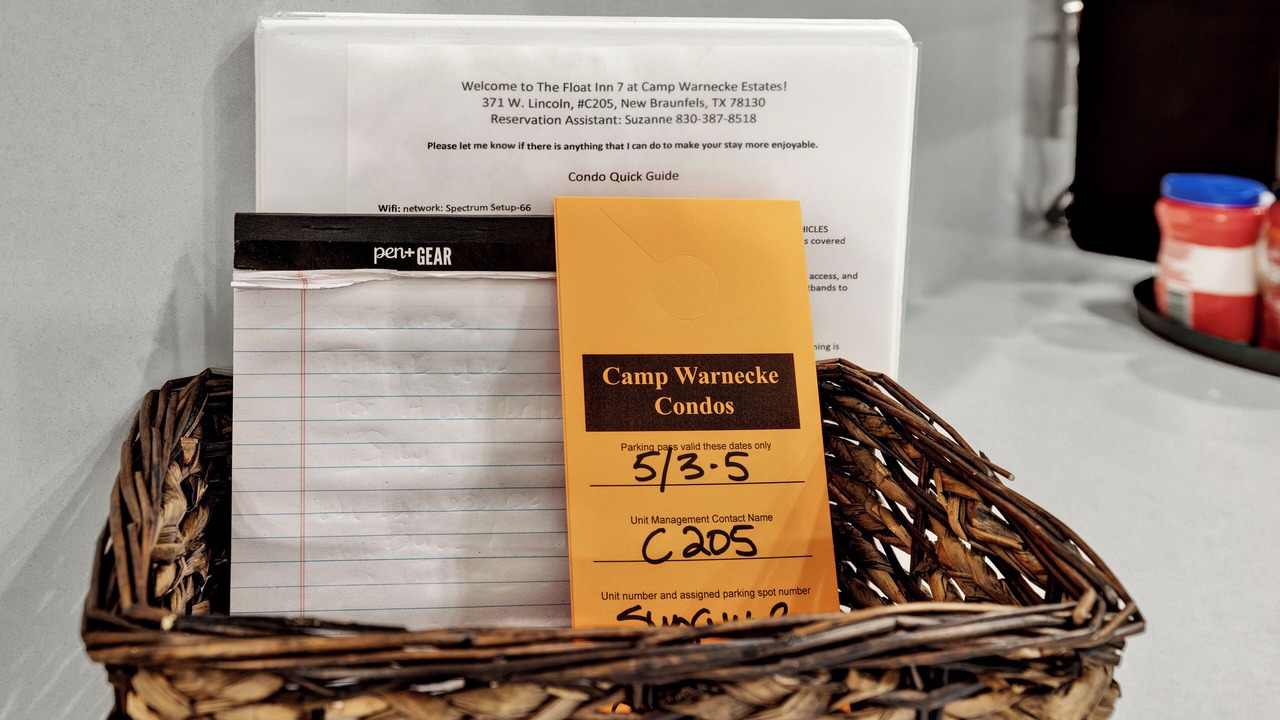 Welcome to The Float Inn 7 at Camp Warnecke Estates!
371 W. Lincoln, #C205, New Braunfels, TX 78130
Reservation Assistant: Suzanne 830-387-8518
Please let me know if there is anything that I can do to make your stay more enjoyable.
Condo Quick Guide
Wifi: network: Spectrum Setup-66
covered
access, and
to
is
pen+GEAR
Camp Warnecke
Condos
Parking pass valid these dates only
5/3-5
Unit Management Contact Name
C205
Unit number and assigned parking spot number